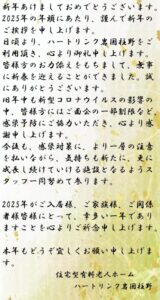 新年あけましておめでとうございます。
2023年の年頭にあたり、謹んで新年の
ご挨拶を申し上げます。
日頃より、ハートリンク岩国柱野をご
利用頂き、心より御礼申し上げます。
皆様方のお力添えをもちまして、無事
に新春を迎えることができました。誠
にありがとうございます。
旧年中も新型コロナウイルスの影響の
中、皆様方にはご面会の一部制限など
感染予防にご協力いただき、心より感
謝申し上げます。
今後も、感染対策に、より一層の注意
を払いながら、気持ちも新たに、更に
成長し続けていける施設となるようス
タッフ一同努めて参ります。
2023年がご入居様、ご家族様、ご関係
者様皆様にとって、幸多い一年であり
ますことを心よりご祈念申し上げます。
本年もどうぞ宜しくお願い申し上げま
す。
住宅型有料老人ホーム
ハートリンク岩国柱野